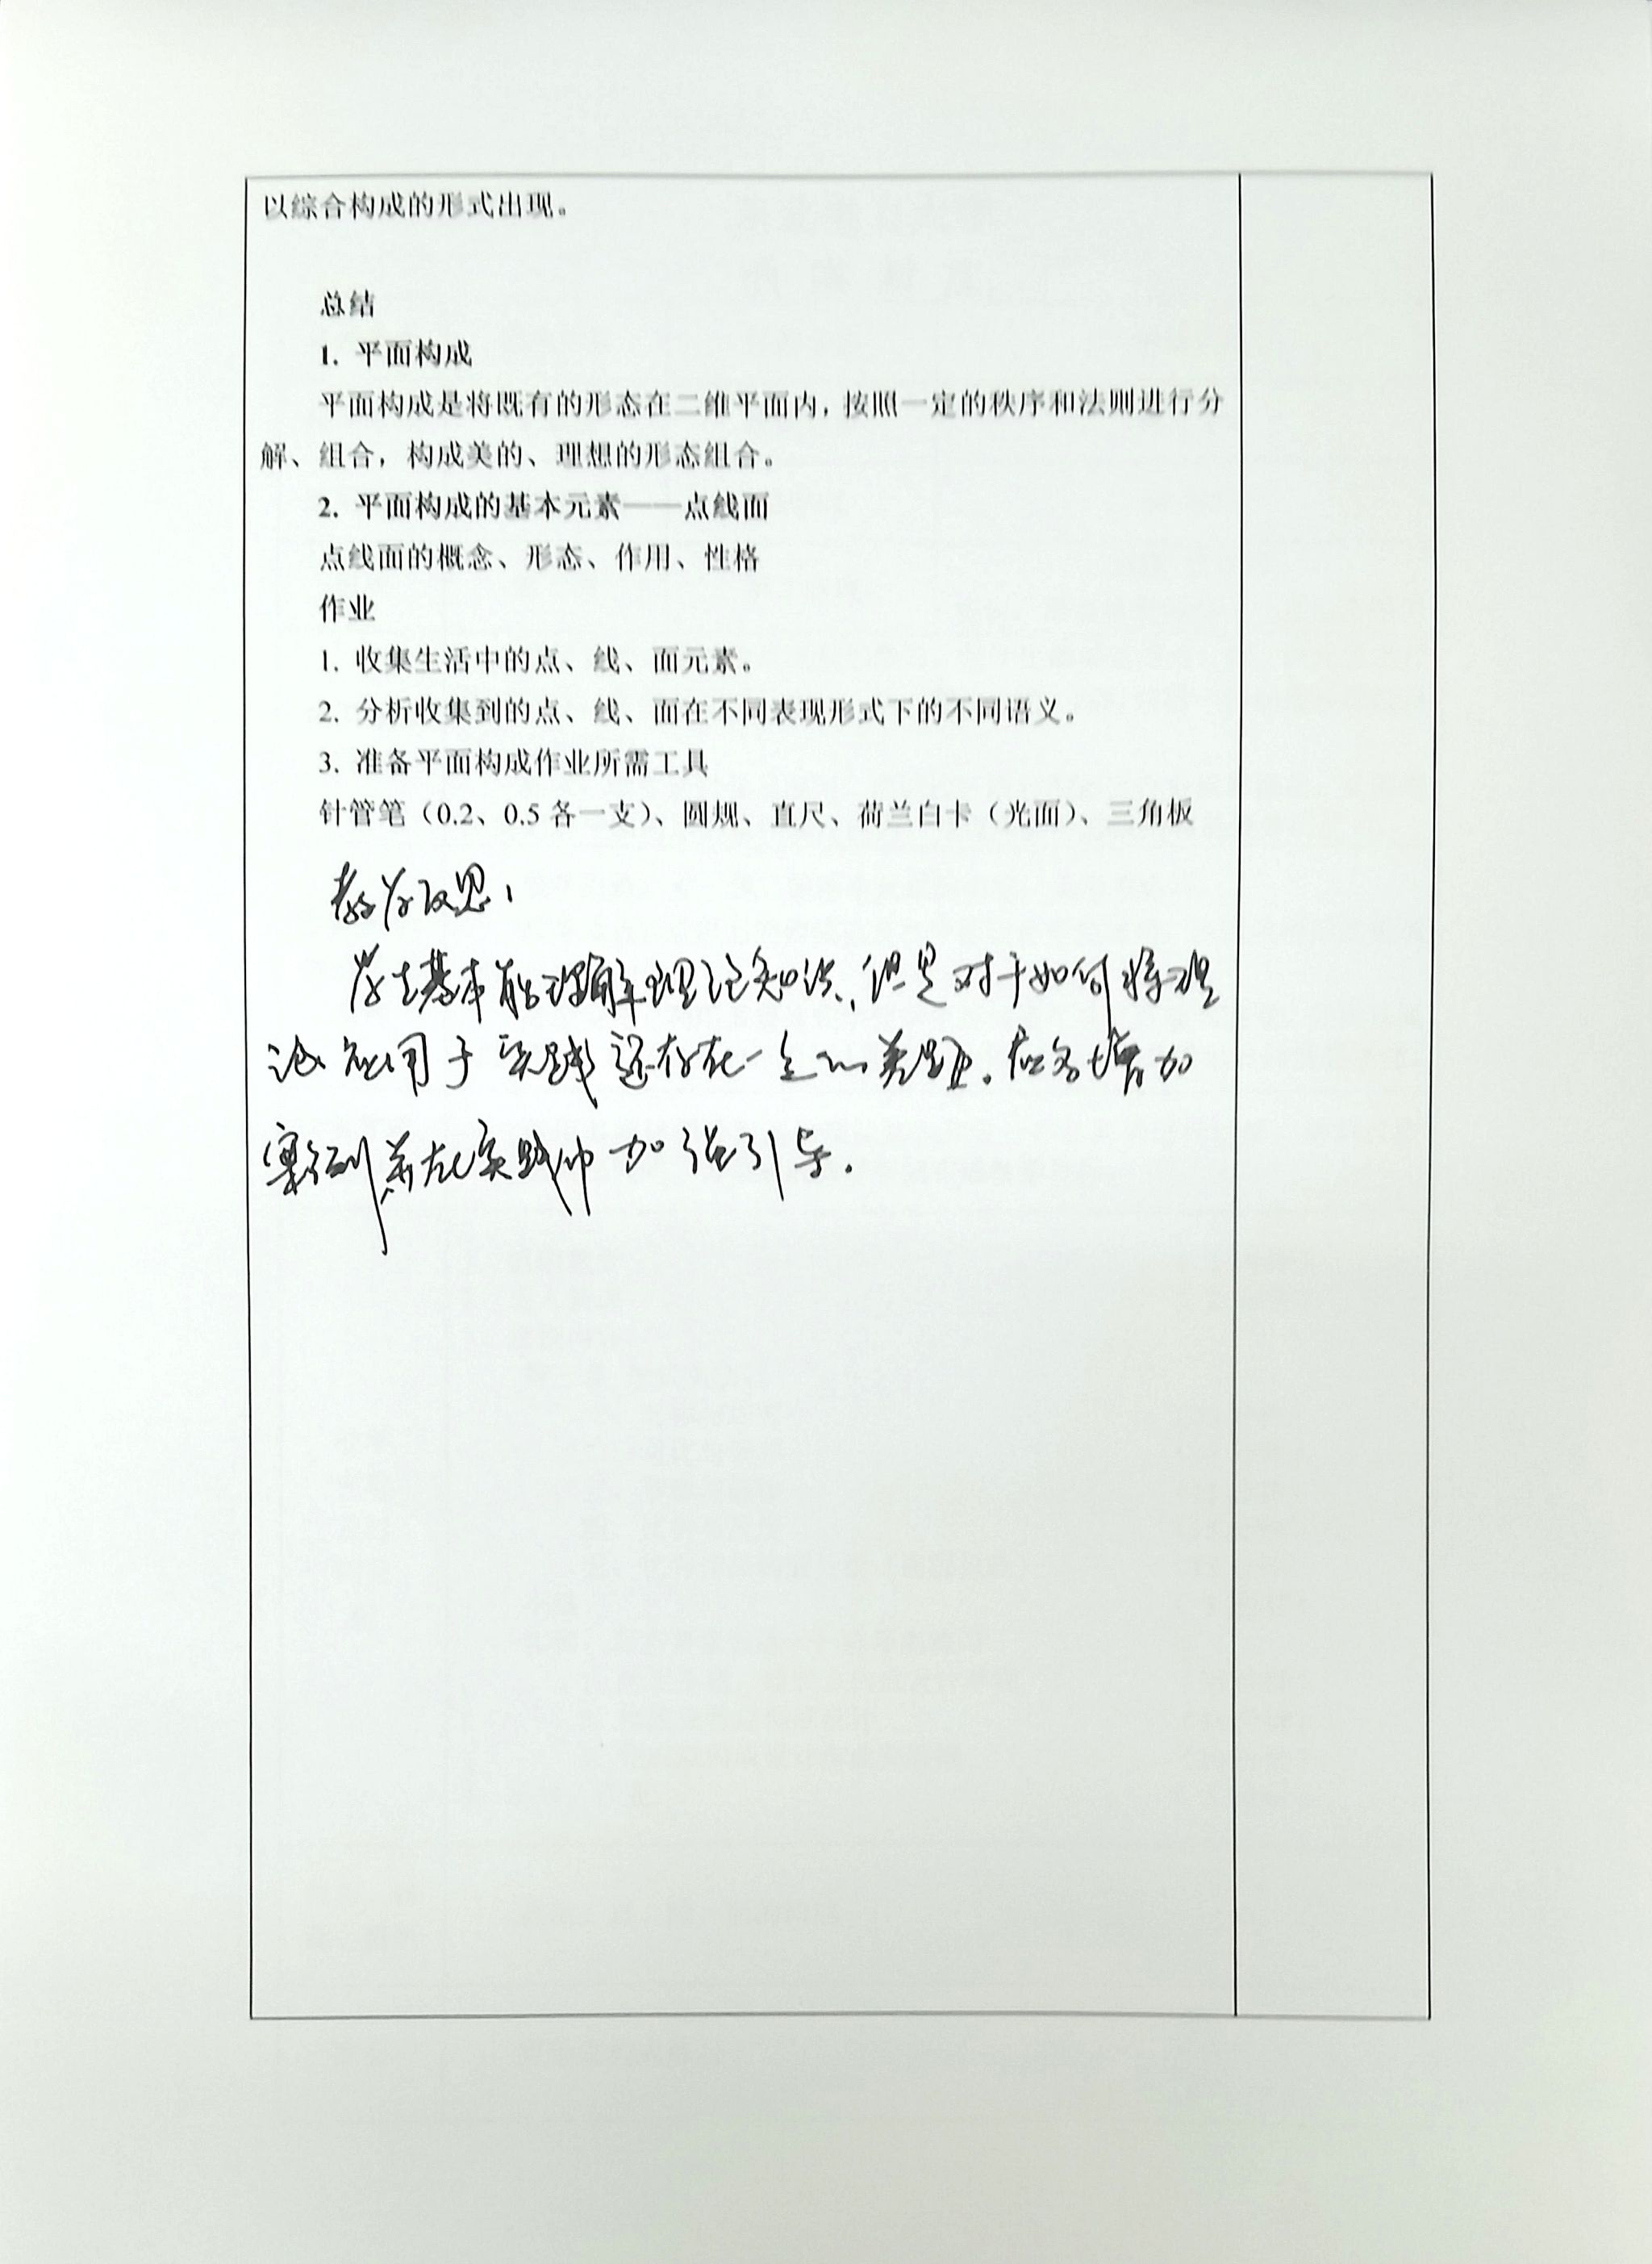 以综合构成的形式出现。
总结
1. 平面构成
平面构成是将既有的形态在二维平面内，按照一定的秩序和法则进行分
解、组合，构成美的、理想的形态组合。
2. 平面构成的基本元素——点线面
点线面的概念、形态、作用、性格
作业
1. 收集生活中的点、线、面元素。
2. 分析收集到的点、线、面在不同表现形式下的不同语义。
3. 准备平面构成作业所需工具
针管笔（0.2、0.5 各一支）、圆规、直尺、荷兰白卡（光面）、三角板
教学反思：
学生基本能理解理论知识，但是对于如何将理
论应用于实践还存在一定的差距。应多增加
案例并在实践中加强引导。